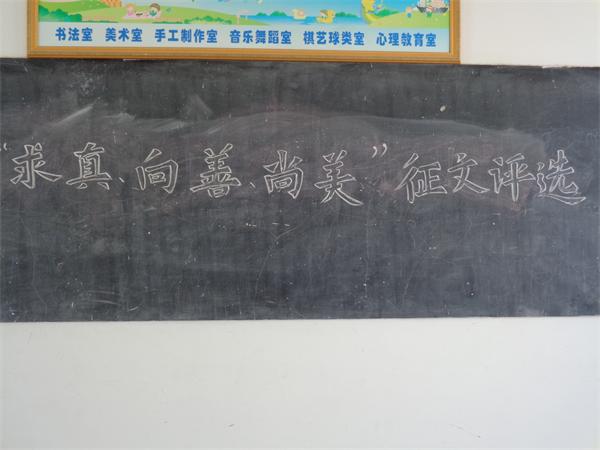 书法室 美术室 手工制作室 音乐舞蹈室 棋艺球类室 心理教育室
“求真、向善、尚美”征文评选